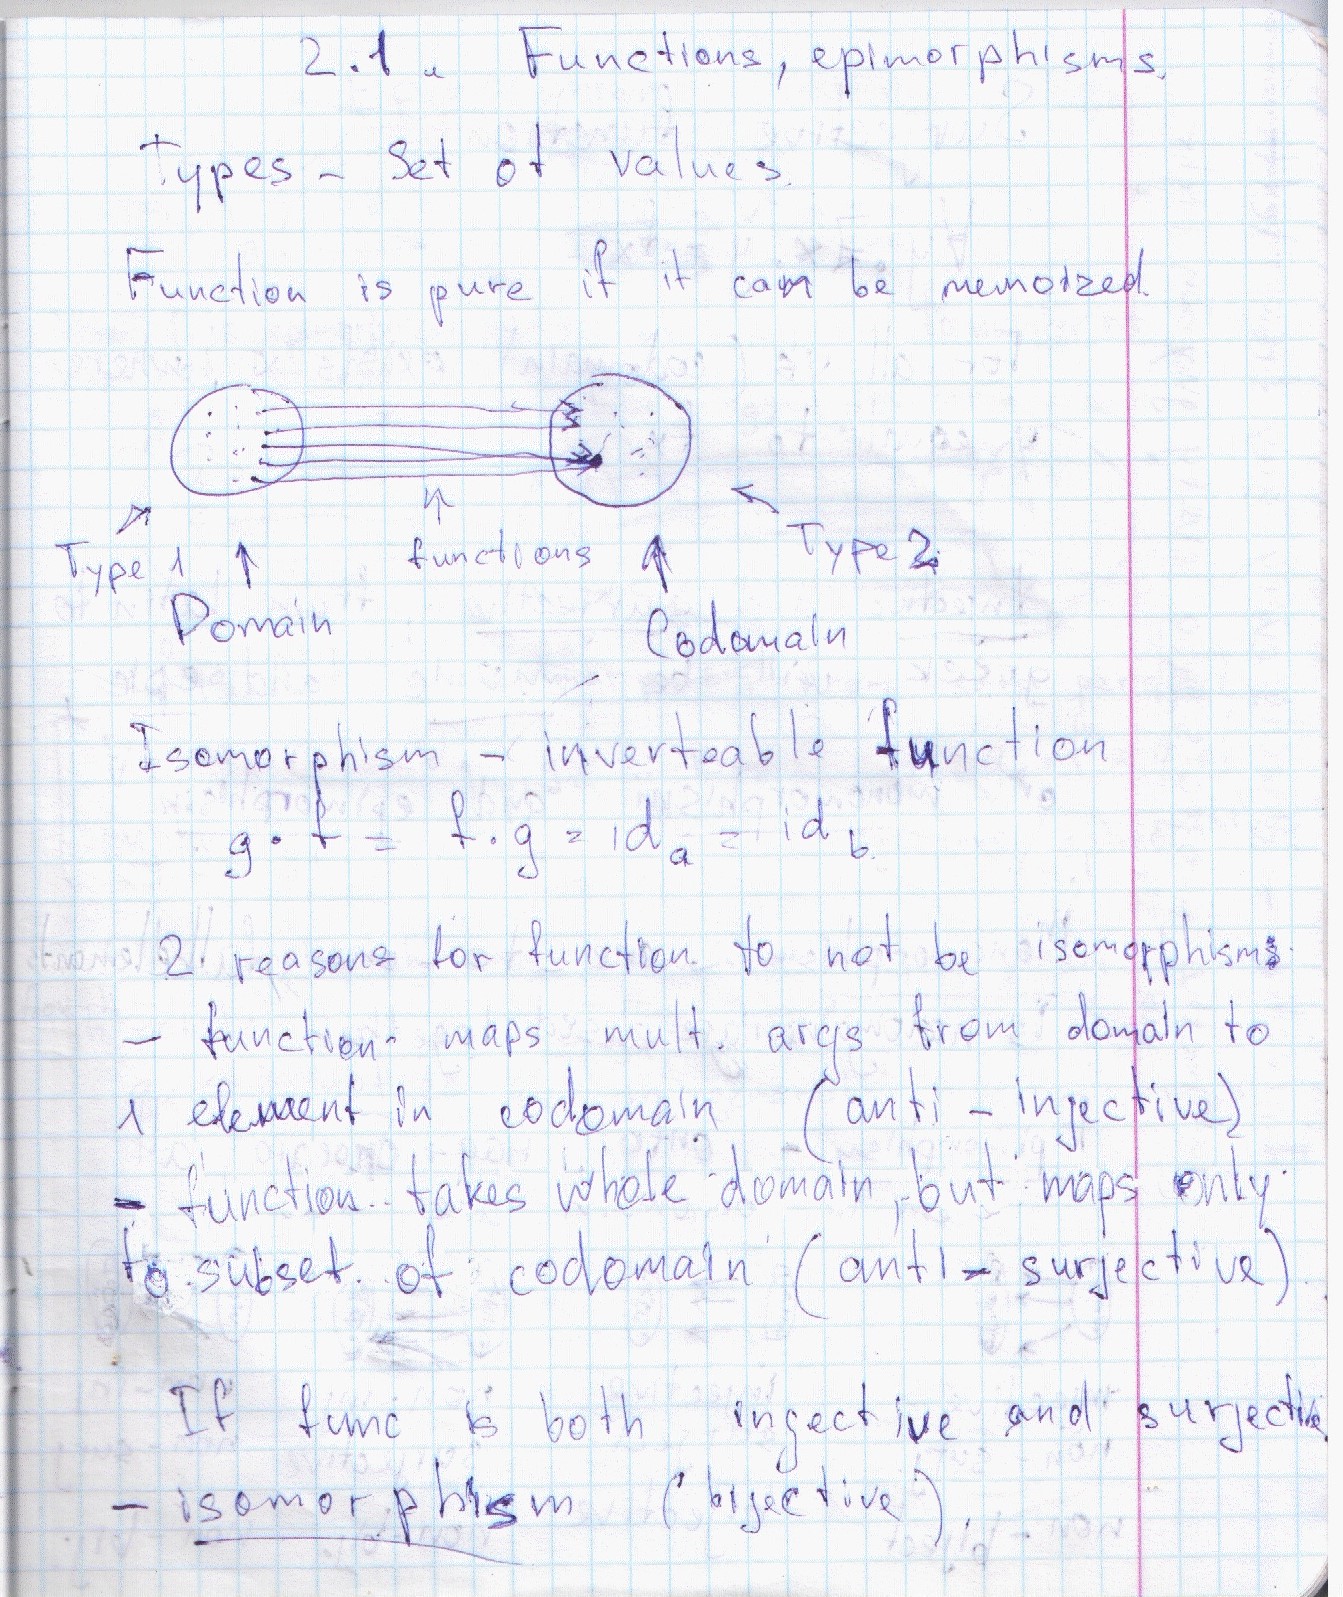 2.1. Functions, epimorphisms.
Types - Set of values.
Function is pure if it can be memoized.
Type 1
functions
Type 2.
Domain
Codomain
Isomorphism - inverteable function
g · f = f · g = id a = id b.
2 reasons for function to not be isomorphisms.
- function maps mult. args from domain to
1 element in codomain (anti - injective)
- function takes whole domain, but maps only
to subset of codomain (anti - surjective)
If func is both ingective and surjective
- isomorphism (bijective).